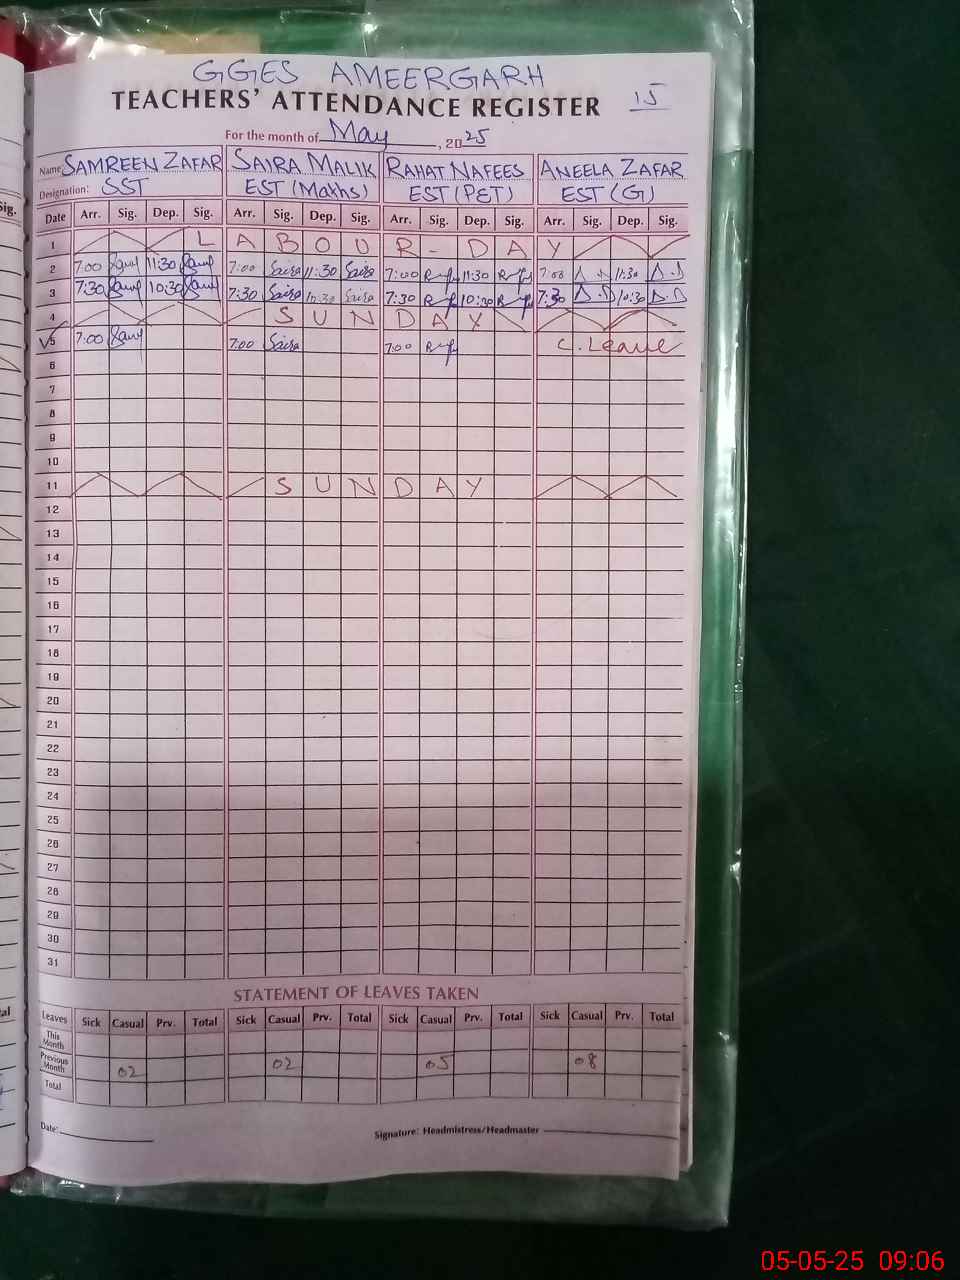 GGES AMEERGARH
TEACHERS' ATTENDANCE REGISTER 15
For the month of May, 2025
Name SAMREEN ZAFAR SAIRA MALIK RAHAT NAFEES ANEELA ZAFAR
Designation: SST EST (Maths) EST (PET) EST (G)
Sig.
Date Arr. Sig. Dep. Sig. Arr. Sig. Dep. Sig. Arr. Sig. Dep. Sig. Arr. Sig. Dep. Sig.
1 L A B O U R - D A Y
2 7:00 11:30 7:00 Saira 11:30 Saira 7:00 11:30 7:00 11:30
3 7:30 10:30 7:30 Saira 10:30 Saira 7:30 10:30 7:30 10:30
4 S U N D A Y
5 7:00 7:00 Saira 7:00 C. Leave
6
7
8
9
10
11 S U N D A Y
12
13
14
15
16
17
18
19
20
21
22
23
24
25
26
27
28
29
30
31
STATEMENT OF LEAVES TAKEN
Leaves Sick Casual Prv. Total Sick Casual Prv. Total Sick Casual Prv. Total Sick Casual Prv. Total
This Month
Previous Month 02 02 05 08
Total
Date: Signature: Headmistress/Headmaster
05-05-25 09:06